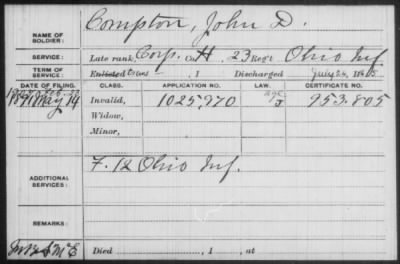 Compton, John D.
NAME OF SOLDIER:
SERVICE: Late rank, Corp. Co. H, 23 Reg't Ohio Inf
TERM OF SERVICE: Enlisted, 1 Discharged July 26, 1865
DATE OF FILING. CLASS. APPLICATION NO. LAW. CERTIFICATE NO.
1891 May 14 Invalid, 1025,970 953.805
Widow,
Minor,
ADDITIONAL SERVICES: F. 12 Ohio Inf.
REMARKS:
Died, 1, at